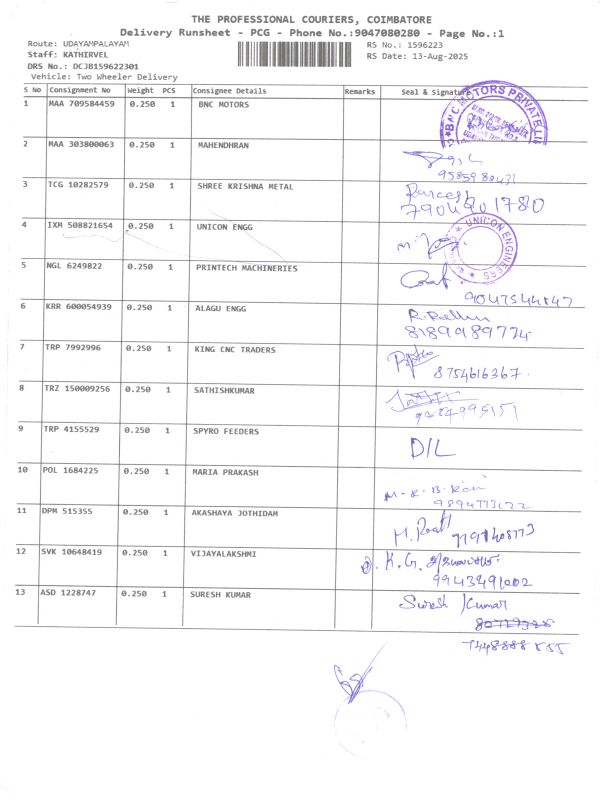 THE PROFESSIONAL COURIERS, COIMBATORE
Delivery Runsheet - PCG - Phone No.:9047080280 - Page No.:1
Route: UDAYAMPALAYAM
RS No.: 1596223
Staff: KATHIRVEL
RS Date: 13-Aug-2025
DRS No.: DCJB159622301
Vehicle: Two Wheeler Delivery
S No Consignment No Weight PCS Consignee Details Remarks Seal & Signature
1 MAA 709584459 0.250 1 BNC MOTORS
BNC MOTORS PRIVATE
2 MAA 303800063 0.250 1 MAHENDHRAN
9585988431
3 TCG 10282579 0.250 1 SHREE KRISHNA METAL
4 IXM 508821654 0.250 1 UNICON ENGG
UNICON ENGINEERS
5 NGL 6249822 0.250 1 PRINTECH MACHINERIES
6 KRR 600054939 0.250 1 ALAGU ENGG
8189989774
7 TRP 7992996 0.250 1 KING CNC TRADERS
8754616367
8 TRZ 150009256 0.250 1 SATHISHKUMAR
9 TRP 4155529 0.250 1 SPYRO FEEDERS
D/L
10 POL 1684225 0.250 1 MARIA PRAKASH
M-R-B-
11 DPM 515355 0.250 1 AKASHAYA JOTHIDAM
12 SVK 10648419 0.250 1 VIJAYALAKSHMI
K.G.
9943491002
13 ASD 1228747 0.250 1 SURESH KUMAR
Suresh Kumar